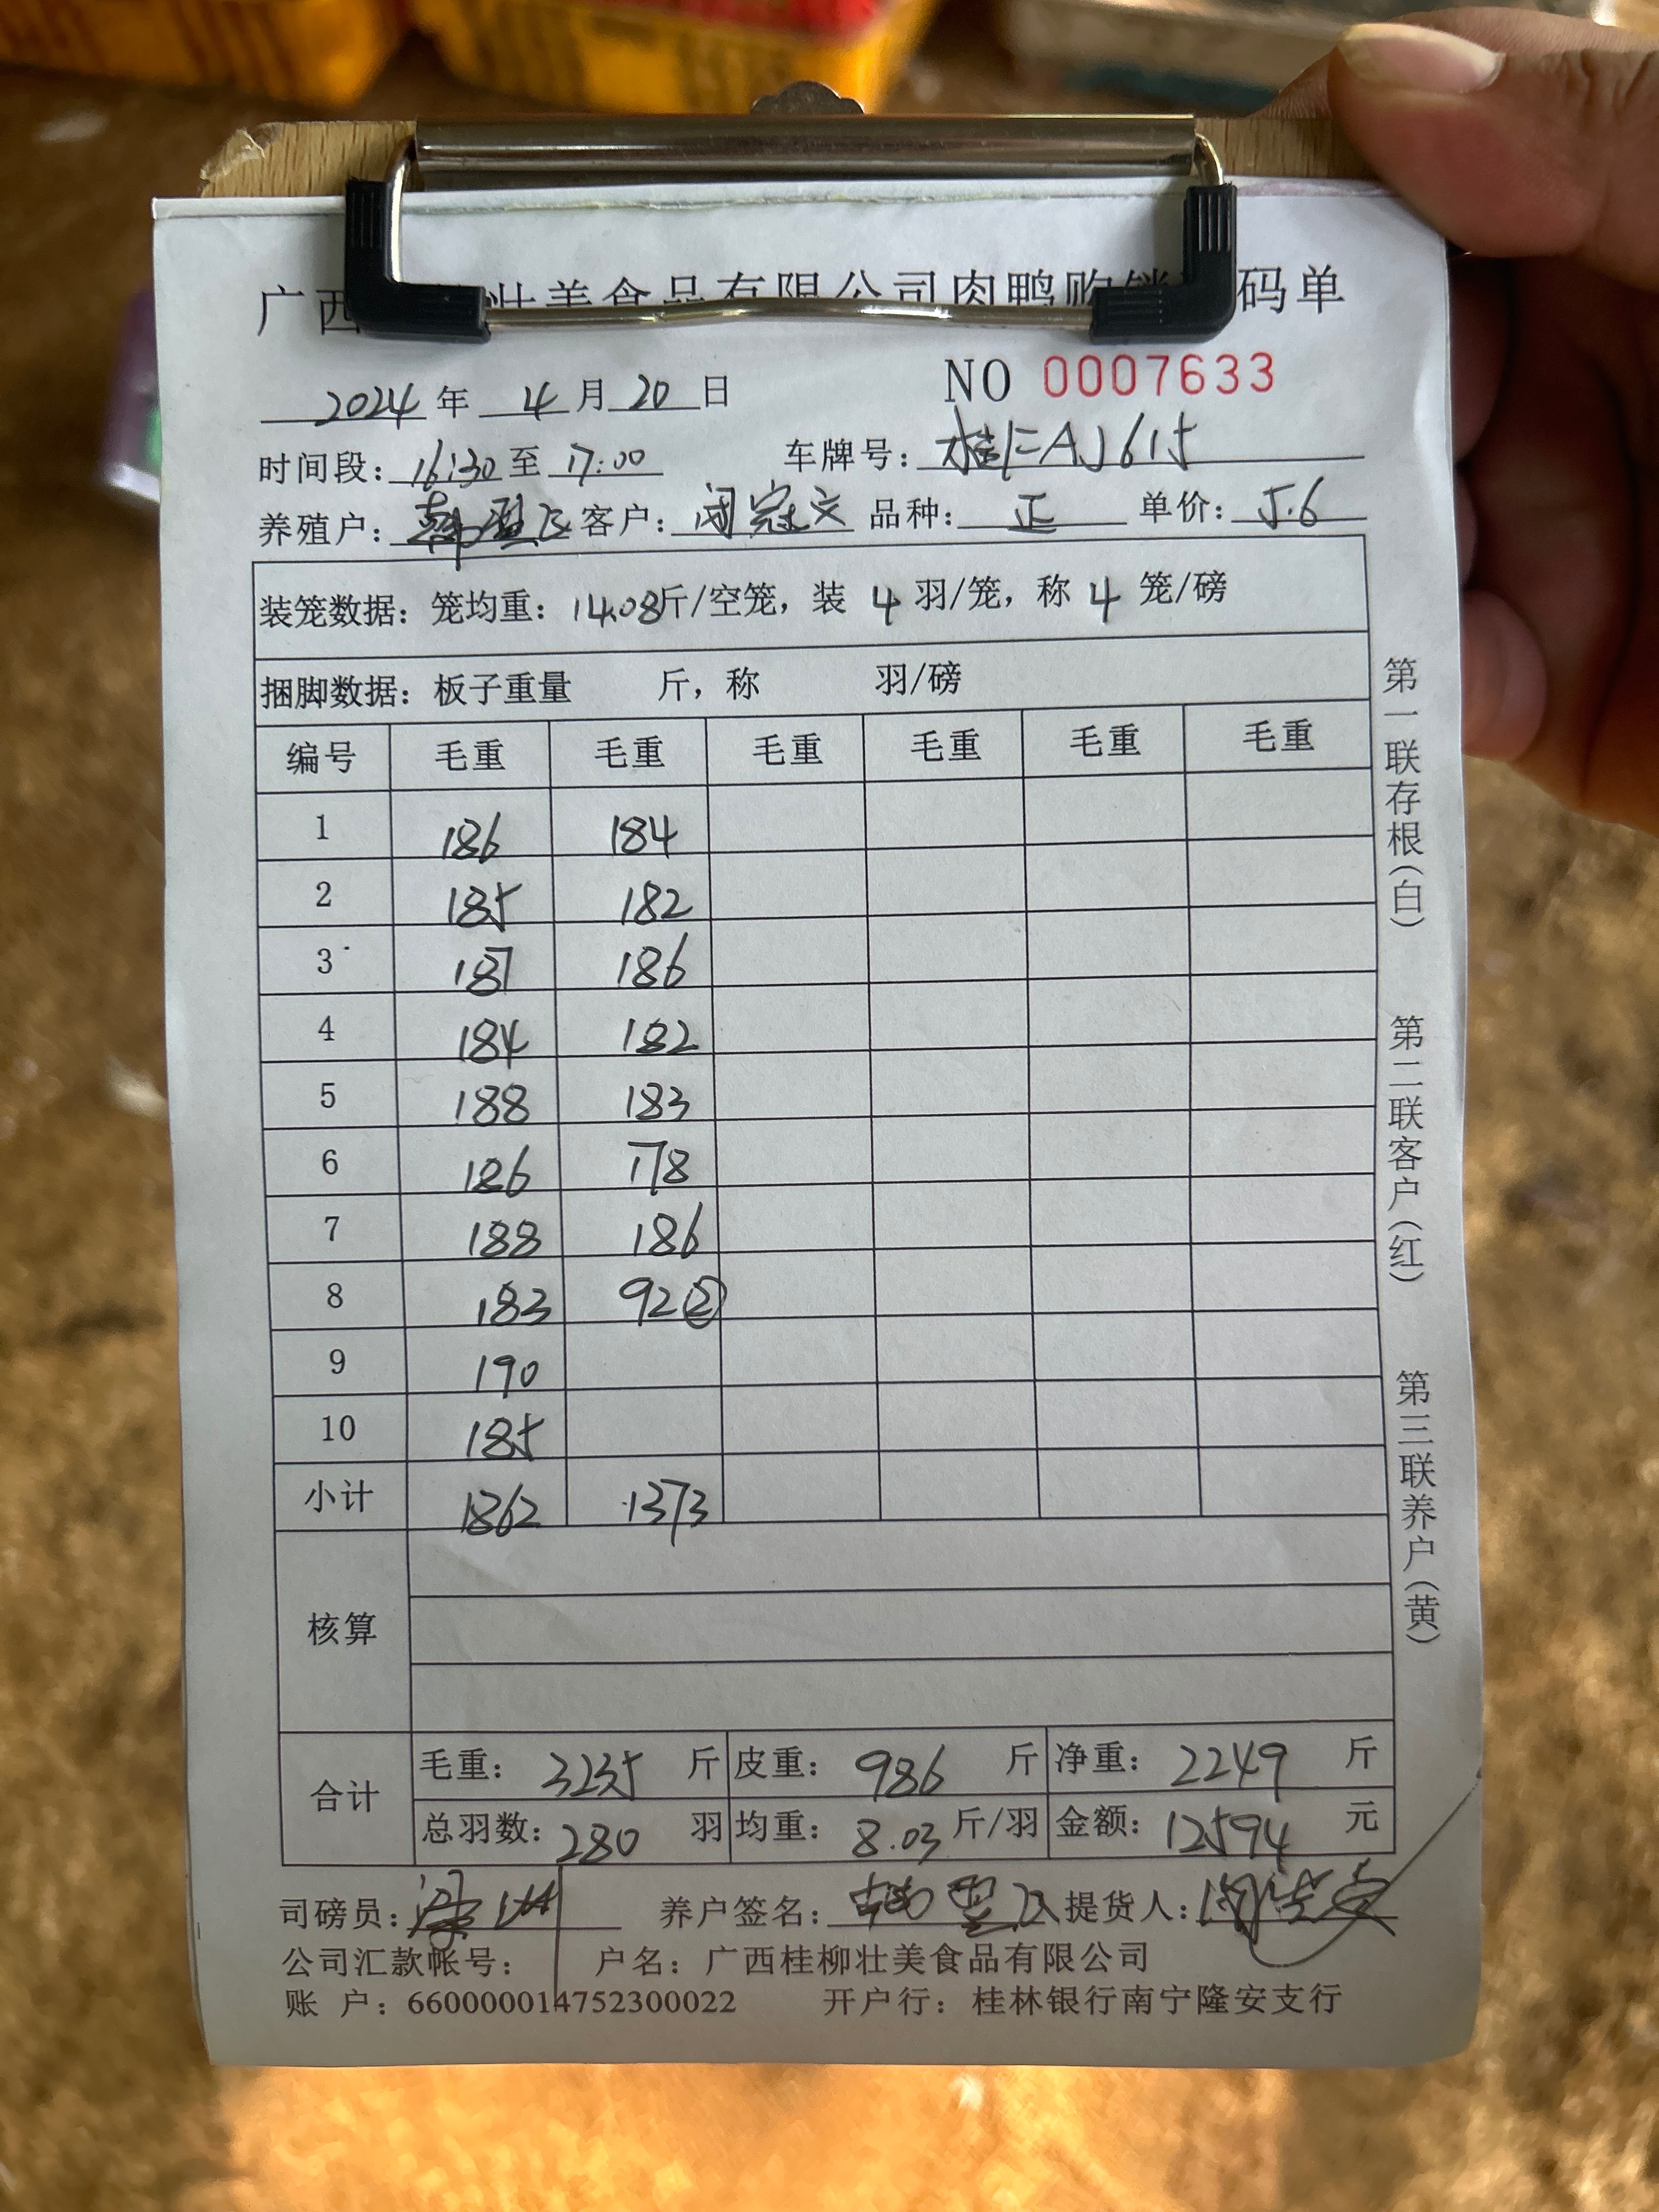 广西 壮美食品有限公司肉鸭购销 码单
NO 0007633
2024 年 4 月 20 日
时间段: 16:30 至 17:00 车牌号: 桂 AJ615
养殖户: 客户: 闭冠文 品种: 正 单价: 5.6
装笼数据: 笼均重: 14.08斤/空笼, 装 4 羽/笼, 称 4 笼/磅
捆脚数据: 板子重量 斤, 称 羽/磅
编号 毛重 毛重 毛重 毛重 毛重 毛重
1 186 184
2 185 182
3 187 186
4 184 182
5 188 183
6 186 178
7 188 186
8 183 92②
9 190
10 185
小计 1862 1373
核算
合计
毛重: 3235 斤 皮重: 986 斤 净重: 2249 斤
总羽数: 280 羽 均重: 8.03 斤/羽 金额: 12594 元
司磅员: 养户签名: 提货人:
公司汇款帐号: 户名: 广西桂柳壮美食品有限公司
账 户: 660000014752300022 开户行: 桂林银行南宁隆安支行
第一联存根(白)
第二联客户(红)
第三联养户(黄)